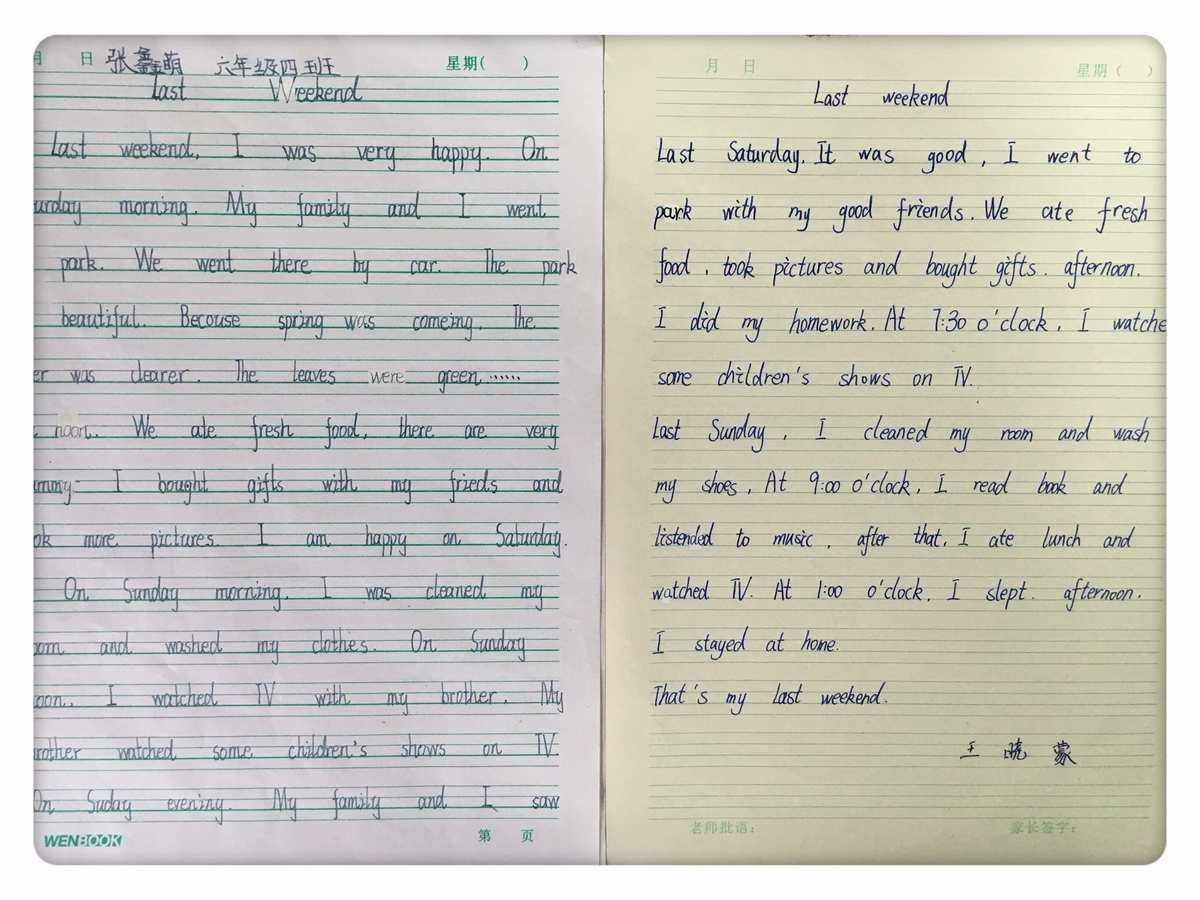 月 日 张鑫萌 六年级四班 星期( )
Last Weekend
Last weekend, I was very happy. On
urday morning. My family and I went
park. We went there by car. The park
beautiful. Becouse spring was comeing. The
er was clearer. The leaves were green......
noon. We ate fresh food, there are very
ummy. I bought gifts with my frieds and
ok more pictures. I am happy on Saturday.
On Sunday morning. I was cleaned my
oom and washed my clothes. On Sunday
noon. I watched TV with my brother. My
brother watched some children's shows on TV.
On Suday evening. My family and I saw
WENBOOK 第 页
月 日 星期( )
Last weekend
Last Saturday. It was good, I went to
park with my good friends. We ate fresh
food, took pictures and bought gifts. afternoon.
I did my homework. At 7:30 o'clock, I watche
some children's shows on TV.
Last Sunday, I cleaned my room and wash
my shoes, At 9:00 o'clock, I read book and
listended to music, after that, I ate lunch and
watched TV. At 1:00 o'clock, I slept. afternoon.
I stayed at home.
That's my last weekend.
王晓蒙
老师批语: 家长签字: